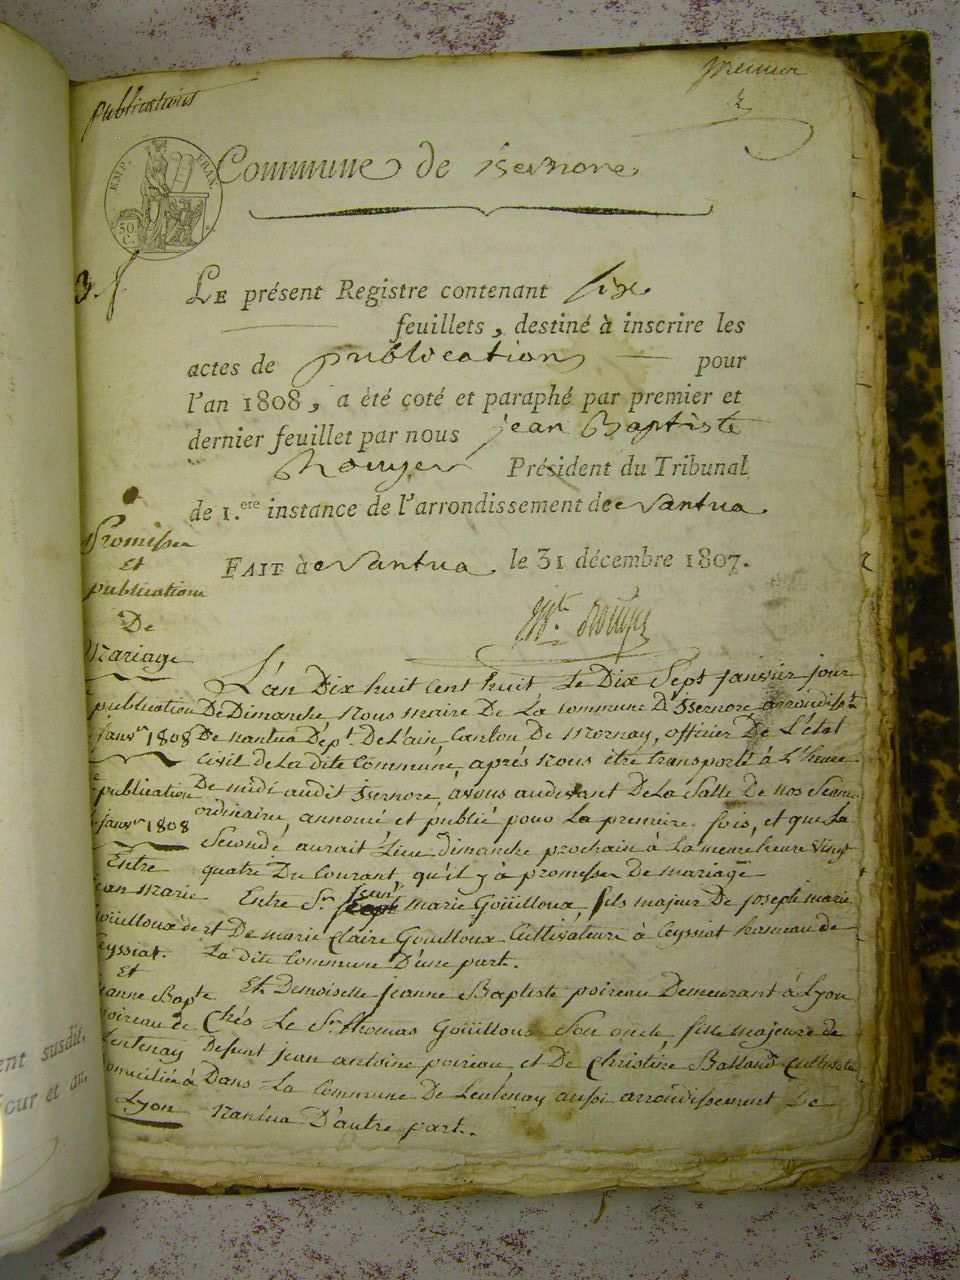 publications
premier
EMP. FRAN.
50. C.
Commune de isernore
3.f
LE présent Registre contenant six
feuillets, destiné à inscrire les
actes de publications pour
l'an 1808, a été coté et paraphé par premier et
dernier feuillet par nous jean Baptiste
Rouyer Président du Tribunal
de 1.ere instance de l'arrondissement de Nantua
FAIT à Nantua le 31 décembre 1807.
Bte. Rouyer
Promesses
Et
publications
De
Mariage
L'an Dix huit cent huit Le Dix Sept janvier jour
De Dimanche Nous maire De La Commune D'Isernore arrondisst.
De nantua Dépt. De L'ain Canton De Mornay, officier De L'état
Civil de La dite Commune, après Nous être transporté à L'heure
De midi audit Isernore, avons audevant De La Salle De nos Séances
ordinaire, annoncé et publié pour La premiere fois, et que La
Seconde aurait Lieu dimanche prochain à La meme heure Vingt
quatre Du Courant qu'il y à promesses De mariage
Entre Sr. jean marie Goüilloux, fils majeur De joseph marie
et De marie Claire Goüilloux Cultivateurs à Ceyssiat hameau de
La dite Commune D'une part.
Et Demoiselle jeanne Baptiste poireau Demeurant à Lyon
Chés Le Sr. thomas Goüilloux Son oncle, fille majeure de
Defunt jean antoine poireau et De Christine Balland Cultivate
Dans La Commune De Leutenay aussi arrondissement De
Nantua D'autre part.
publication
janvr. 1808
publication
janvr. 1808
Entre
jean Marie
oüilloux de
eyssiat.
Et
eanne Bapte
oireau de
Leutenay
omiciliée à
Lyon
ent susdit,
jour et an.